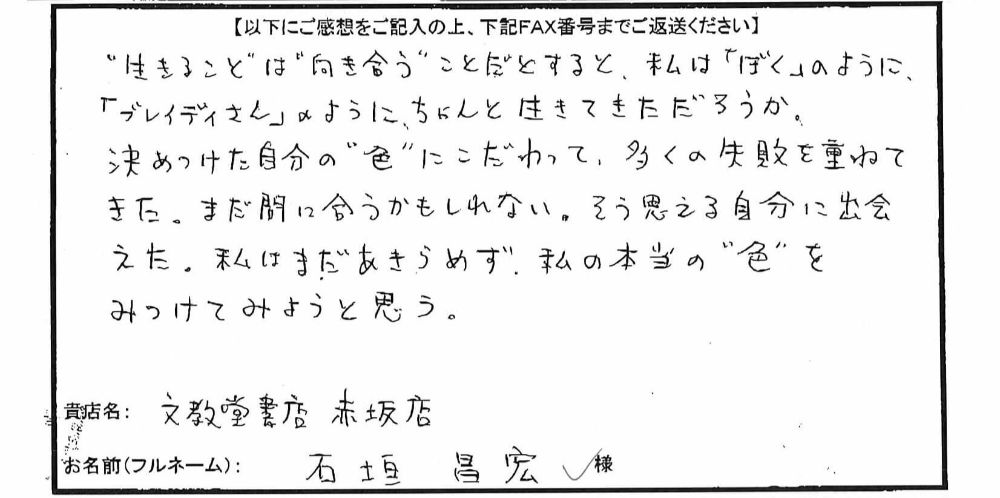 【以下にご感想をご記入の上、下記FAX番号までご返送ください】
"生きること"は"向き合う"ことだとすると、私は「ぼく」のように、
「ブレイディさん」のように、ちゃんと生きてきただろうか。
決めつけた自分の"色"にこだわって、多くの失敗を重ねて
きた。まだ間に合うかもしれない。そう思える自分に出会
えた。私はまだあきらめず、私の本当の"色"を
みつけてみようと思う。
貴店名: 文教堂書店 赤坂店
お名前(フルネーム): 石垣 昌宏 様